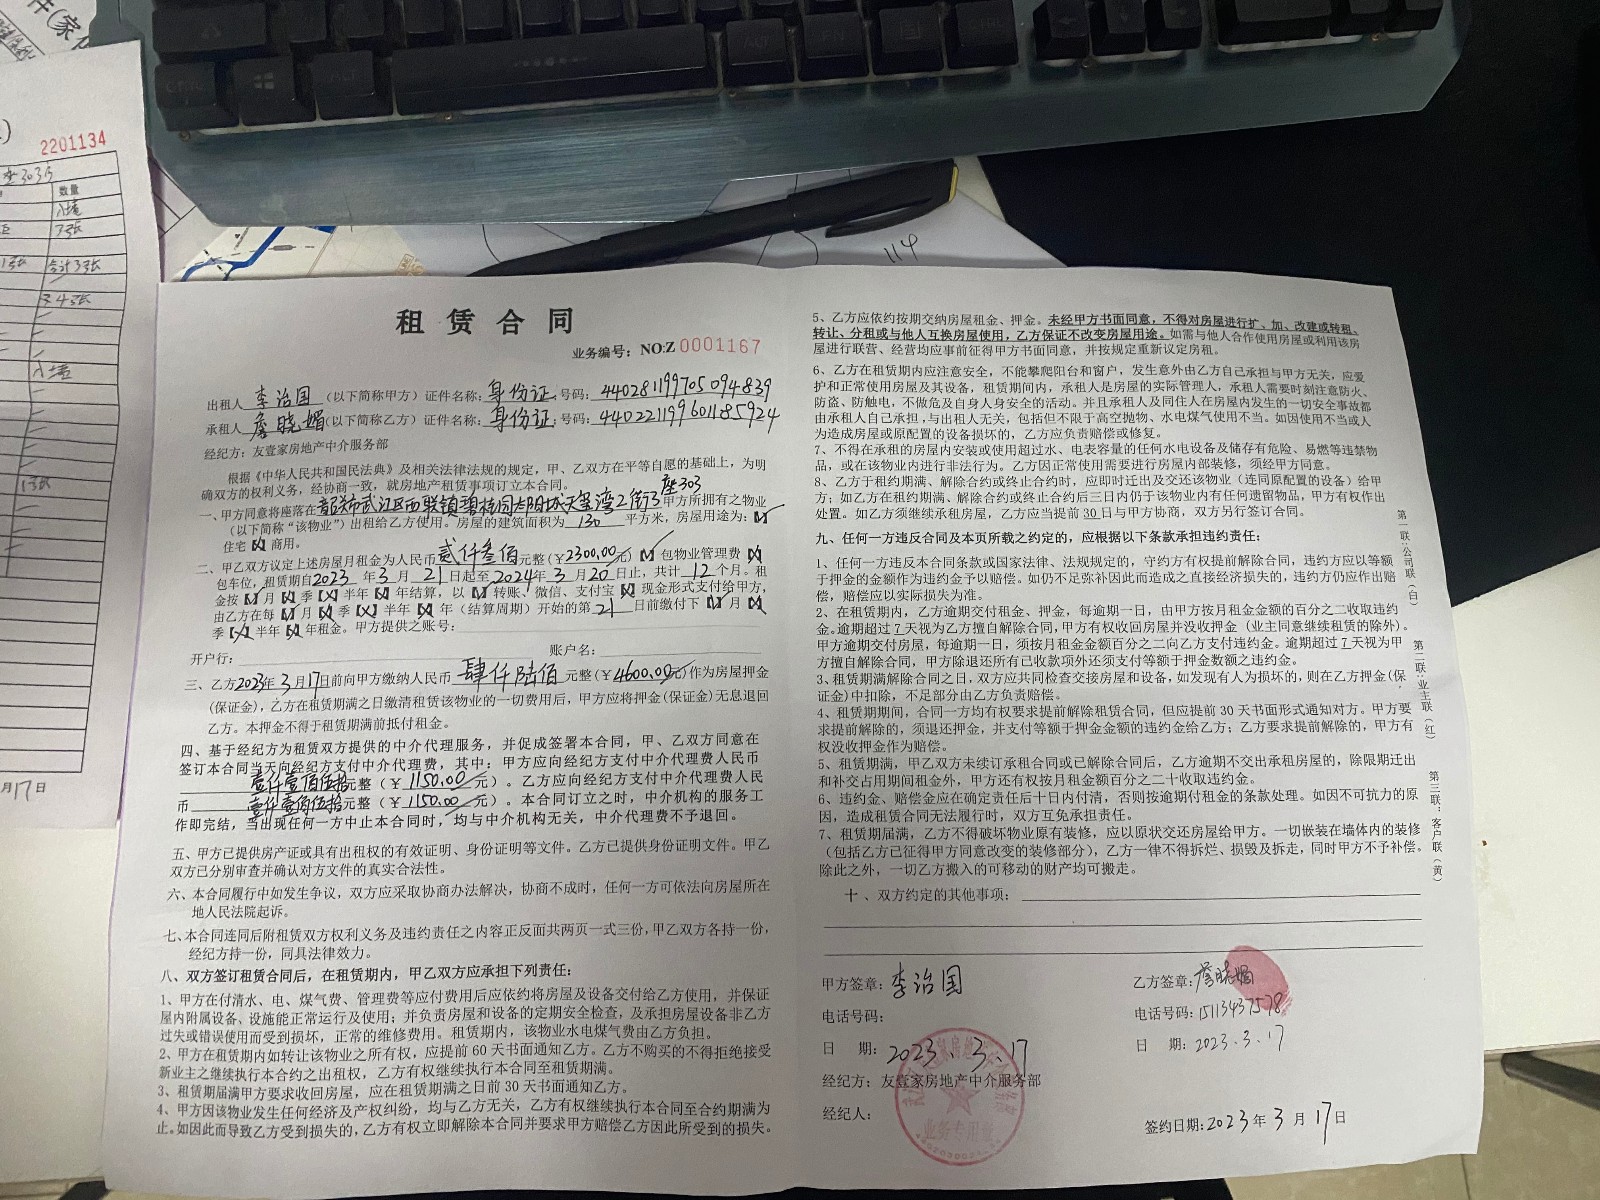 2201134
数量
合计3张
月17日
CTRL
ALT
ALT
FN
CTRL
114
租赁合同
业务编号：NO:Z 0001167
出租人 李治国 （以下简称甲方）证件名称：身份证，号码：440281199705094839
承租人 詹晓媚（以下简称乙方）证件名称：身份证；号码：440221199601185924
经纪方：友壹家房地产中介服务部
根据《中华人民共和国民法典》及相关法律法规的规定，甲、乙双方在平等自愿的基础上，为明
确双方的权利义务，经协商一致，就房地产租赁事项订立本合同。
一、甲方同意将座落在韶关市武江区西联镇碧桂园太阳城天玺湾2街3座303甲方所拥有之物业
（以下简称“该物业”）出租给乙方使用。房屋的建筑面积为 130 平方米，房屋用途为：【✓】
住宅【X】商用。
二、甲乙双方议定上述房屋月租金为人民币贰仟叁佰元整（￥2300.00元）【✓】包物业管理费【X】
包车位，租赁期自2023年3月21日起至2024年3月20日止，共计12个月。租
金按【✓】月【X】季【X】半年【X】年结算，以【✓】转账、微信、支付宝【X】现金形式支付给甲方，
由乙方在每【✓】月【X】季【X】半年【X】年（结算周期）开始的第21日前缴付下【✓】月【X】
季【X】半年【X】年租金。甲方提供之账号：
开户行： 账户名：
三、乙方2023年3月17日前向甲方缴纳人民币 肆仟陆佰 元整（￥4600.00元）作为房屋押金
（保证金），乙方在租赁期满之日缴清租赁该物业的一切费用后，甲方应将押金（保证金）无息退回
乙方。本押金不得于租赁期满前抵付租金。
四、基于经纪方为租赁双方提供的中介代理服务，并促成签署本合同，甲、乙双方同意在
签订本合同当天向经纪方支付中介代理费，其中：甲方应向经纪方支付中介代理费人民币
壹仟壹佰伍拾元整（￥1150.00元）。乙方应向经纪方支付中介代理费人民
币 壹仟壹佰伍拾元整（￥1150.00元）。本合同订立之时，中介机构的服务工
作即完结，当出现任何一方中止本合同时，均与中介机构无关，中介代理费不予退回。
五、甲方已提供房产证或具有出租权的有效证明、身份证明等文件。乙方已提供身份证明文件。甲乙
双方已分别审查并确认对方文件的真实合法性。
六、本合同履行中如发生争议，双方应采取协商办法解决，协商不成时，任何一方可依法向房屋所在
地人民法院起诉。
七、本合同连同后附租赁双方权利义务及违约责任之内容正反面共两页一式三份，甲乙双方各持一份，
经纪方持一份，同具法律效力。
八、双方签订租赁合同后，在租赁期内，甲乙双方应承担下列责任：
1、甲方在付清水、电、煤气费、管理费等应付费用后应依约将房屋及设备交付给乙方使用，并保证
屋内附属设备、设施能正常运行及使用；并负责房屋和设备的定期安全检查，及承担房屋设备非乙方
过失或错误使用而受到损坏，正常的维修费用。租赁期内，该物业水电煤气费由乙方负担。
2、甲方在租赁期内如转让该物业之所有权，应提前60天书面通知乙方。乙方不购买的不得拒绝接受
新业主之继续执行本合约之出租权，乙方有权继续执行本合同至租赁期满。
3、租赁期届满甲方要求收回房屋，应在租赁期满之日前30天书面通知乙方。
4、甲方因该物业发生任何经济及产权纠纷，均与乙方无关，乙方有权继续执行本合同至合约期满为
止。如因此而导致乙方受到损失的，乙方有权立即解除本合同并要求甲方赔偿乙方因此所受到的损失。
5、乙方应依约按期交纳房屋租金、押金。未经甲方书面同意，不得对房屋进行扩、加、改建或转租、
转让、分租或与他人互换房屋使用，乙方保证不改变房屋用途。如需与他人合作使用房屋或利用该房
屋进行联营、经营均应事前征得甲方书面同意，并按规定重新议定房租。
6、乙方在租赁期内应注意安全，不能攀爬阳台和窗户，发生意外由乙方自己承担与甲方无关，应爱
护和正常使用房屋及其设备，租赁期间内，承租人是房屋的实际管理人，承租人需要时刻注意防火、
防盗、防触电，不做危及自身人身安全的活动。并且承租人及同住人在房屋内发生的一切安全事故都
由承租人自己承担，与出租人无关，包括但不限于高空抛物、水电煤气使用不当。如因使用不当或人
为造成房屋或原配置的设备损坏的，乙方应负责赔偿或修复。
7、不得在承租的房屋内安装或使用超过水、电表容量的任何水电设备及储存有危险、易燃等违禁物
品，或在该物业内进行非法行为。乙方因正常使用需要进行房屋内部装修，须经甲方同意。
8、乙方于租约期满、解除合约或终止合约时，应即时迁出及交还该物业（连同原配置的设备）给甲
方；如乙方在租约期满、解除合约或终止合约后三日内仍于该物业内有任何遗留物品，甲方有权作出
处置。如乙方须继续承租房屋，乙方应当提前30日与甲方协商，双方另行签订合同。
九、任何一方违反合同及本页所载之约定的，应根据以下条款承担违约责任：
1、任何一方违反本合同条款或国家法律、法规规定的，守约方有权提前解除合同，违约方应以等额
于押金的金额作为违约金予以赔偿。如仍不足弥补因此而造成之直接经济损失的，违约方仍应作出赔
偿，赔偿应以实际损失为准。
2、在租赁期内，乙方逾期交付租金、押金，每逾期一日，由甲方按月租金金额的百分之二收取违约
金。逾期超过7天视为乙方擅自解除合同，甲方有权收回房屋并没收押金（业主同意继续租赁的除外）。
甲方逾期交付房屋，每逾期一日，须按月租金金额百分之二向乙方支付违约金。逾期超过7天视为甲
方擅自解除合同，甲方除退还所有已收款项外还须支付等额于押金数额之违约金。
3、租赁期满解除合同之日，双方应共同检查交接房屋和设备，如发现有人为损坏的，则在押金（保
证金）中扣除，不足部分由乙方负责赔偿。
4、租赁期期间，合同一方均有权要求提前解除租赁合同，但应提前30天书面形式通知对方。甲方要
求提前解除的，须退还押金，并支付等额于押金金额的违约金给乙方；乙方要求提前解除的，甲方有
权没收押金作为赔偿。
5、租赁期满，甲乙双方未续订承租合同或已解除合同后，乙方逾期不交出承租房屋的，除限期迁出
和补交占用期间租金外，甲方还有权按月租金额百分之二十收取违约金。
6、违约金、赔偿金应在确定责任后十日内付清，否则按逾期付租金的条款处理。如因不可抗力的原
因，造成租赁合同无法履行时，双方互免承担责任。
7、租赁期届满，乙方不得破坏物业原有装修，应以原状交还房屋给甲方。一切嵌装在墙体内的装修
（包括乙方已征得甲方同意改变的装修部分），乙方一律不得拆烂、损毁及拆走，同时甲方不予补偿。
除此之外，一切乙方搬入的可移动的财产均可搬走。
十、双方约定的其他事项：
甲方签章：李治国 乙方签章：詹晓媚
电话号码： 电话号码：15113437578
日 期：2023.3.17 日 期：2023.3.17
经纪方：友壹家房地产中介服务部
经纪人：
业务专用章
签约日期：2023年3月17日
第一联：公司联（白）
第二联：业主联（红）
第三联：客户联（黄）